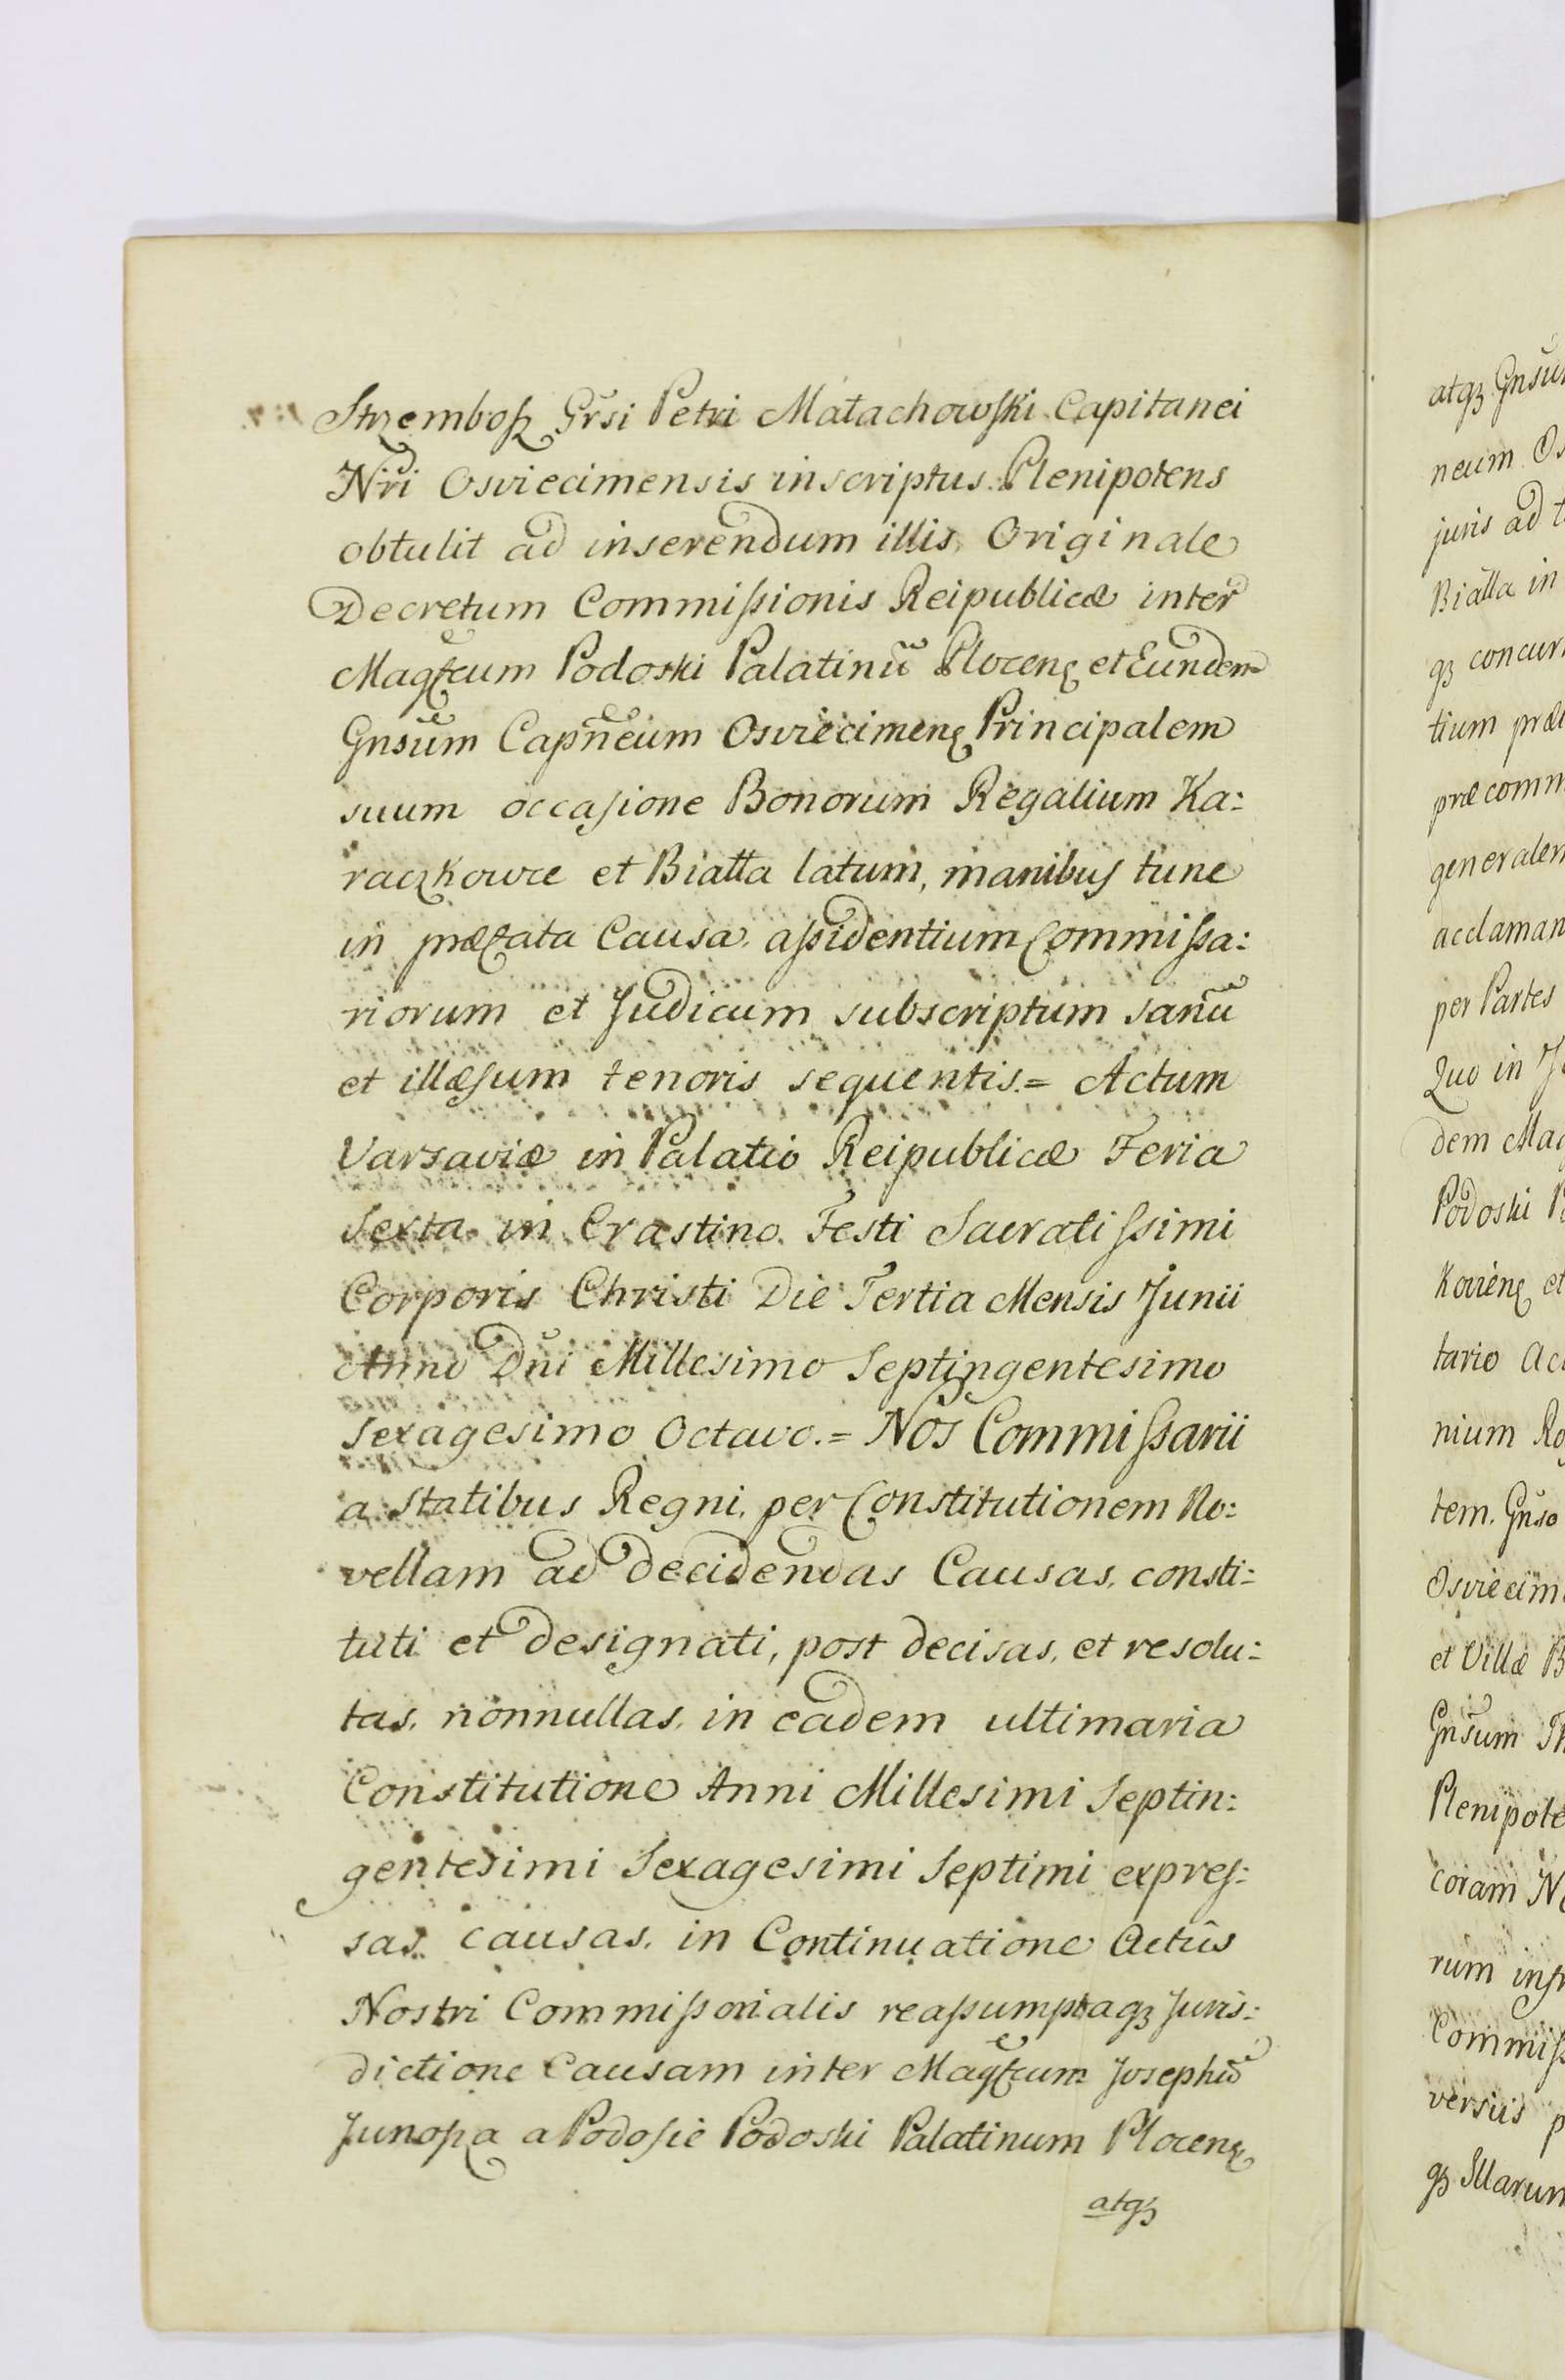 Strzembosz Grsi Petri Małachowski Capitanei
Nri Osviecimensis inscriptus Plenipotens
obtulit ad inserendum illis Originale
Decretum Commissionis Reipublicæ inter
Magfcum Podoski Palatinũ Plocenę et Eundem
Gnsum Capneum Osviecimenę Principalem
suum occasione Bonorum Regalium Ka:
raczkowce et Biatta latum, manibus tunc
in præfata Causa assidentium Commissa:
riorum et Judicum subscriptum sanũ
et illæsum tenoris sequentis.= Actum
Varsaviæ in Palatio Reipublicæ Feria
Sexta in Crastino Festi Sacratissimi
Corporis Christi Die Tertia Mensis Junii
Anno Dni Millesimo Septingentesimo
Sexagesimo Octavo.= Nos Commissarii
a Statibus Regni, per Constitutionem No:
vellam ad decidendas Causas, consti:
tuti et designati, post decisas, et resolu:
tas, nonnullas, in eadem ultimaria
Constitutione Anni Millesimi Septin:
gentesimi Sexagesimi Septimi expres:
sas causas, in Continuatione Actûs
Nostri Commissorialis reassumptaqꝫ Juris:
dictione Causam inter Magfcum Josephũ
Junosza a Podosie Podoski Palatinum Plocenę
atqꝫ
atqꝫ Gnsu
neum Os
juris ad t
Bialla in
qꝫ concur
tium præ
præcomm
generalem
acclaman
per Partes
Quo in J
dem Mag
Podoski P
Kovienę et
tario Ac
nium Ro
tem. Gnso
Osviecim
et Villæ B
Gnsum Th
Plenipote
coram N
rum insr
Commiss
versiis p
qꝫ Illarum